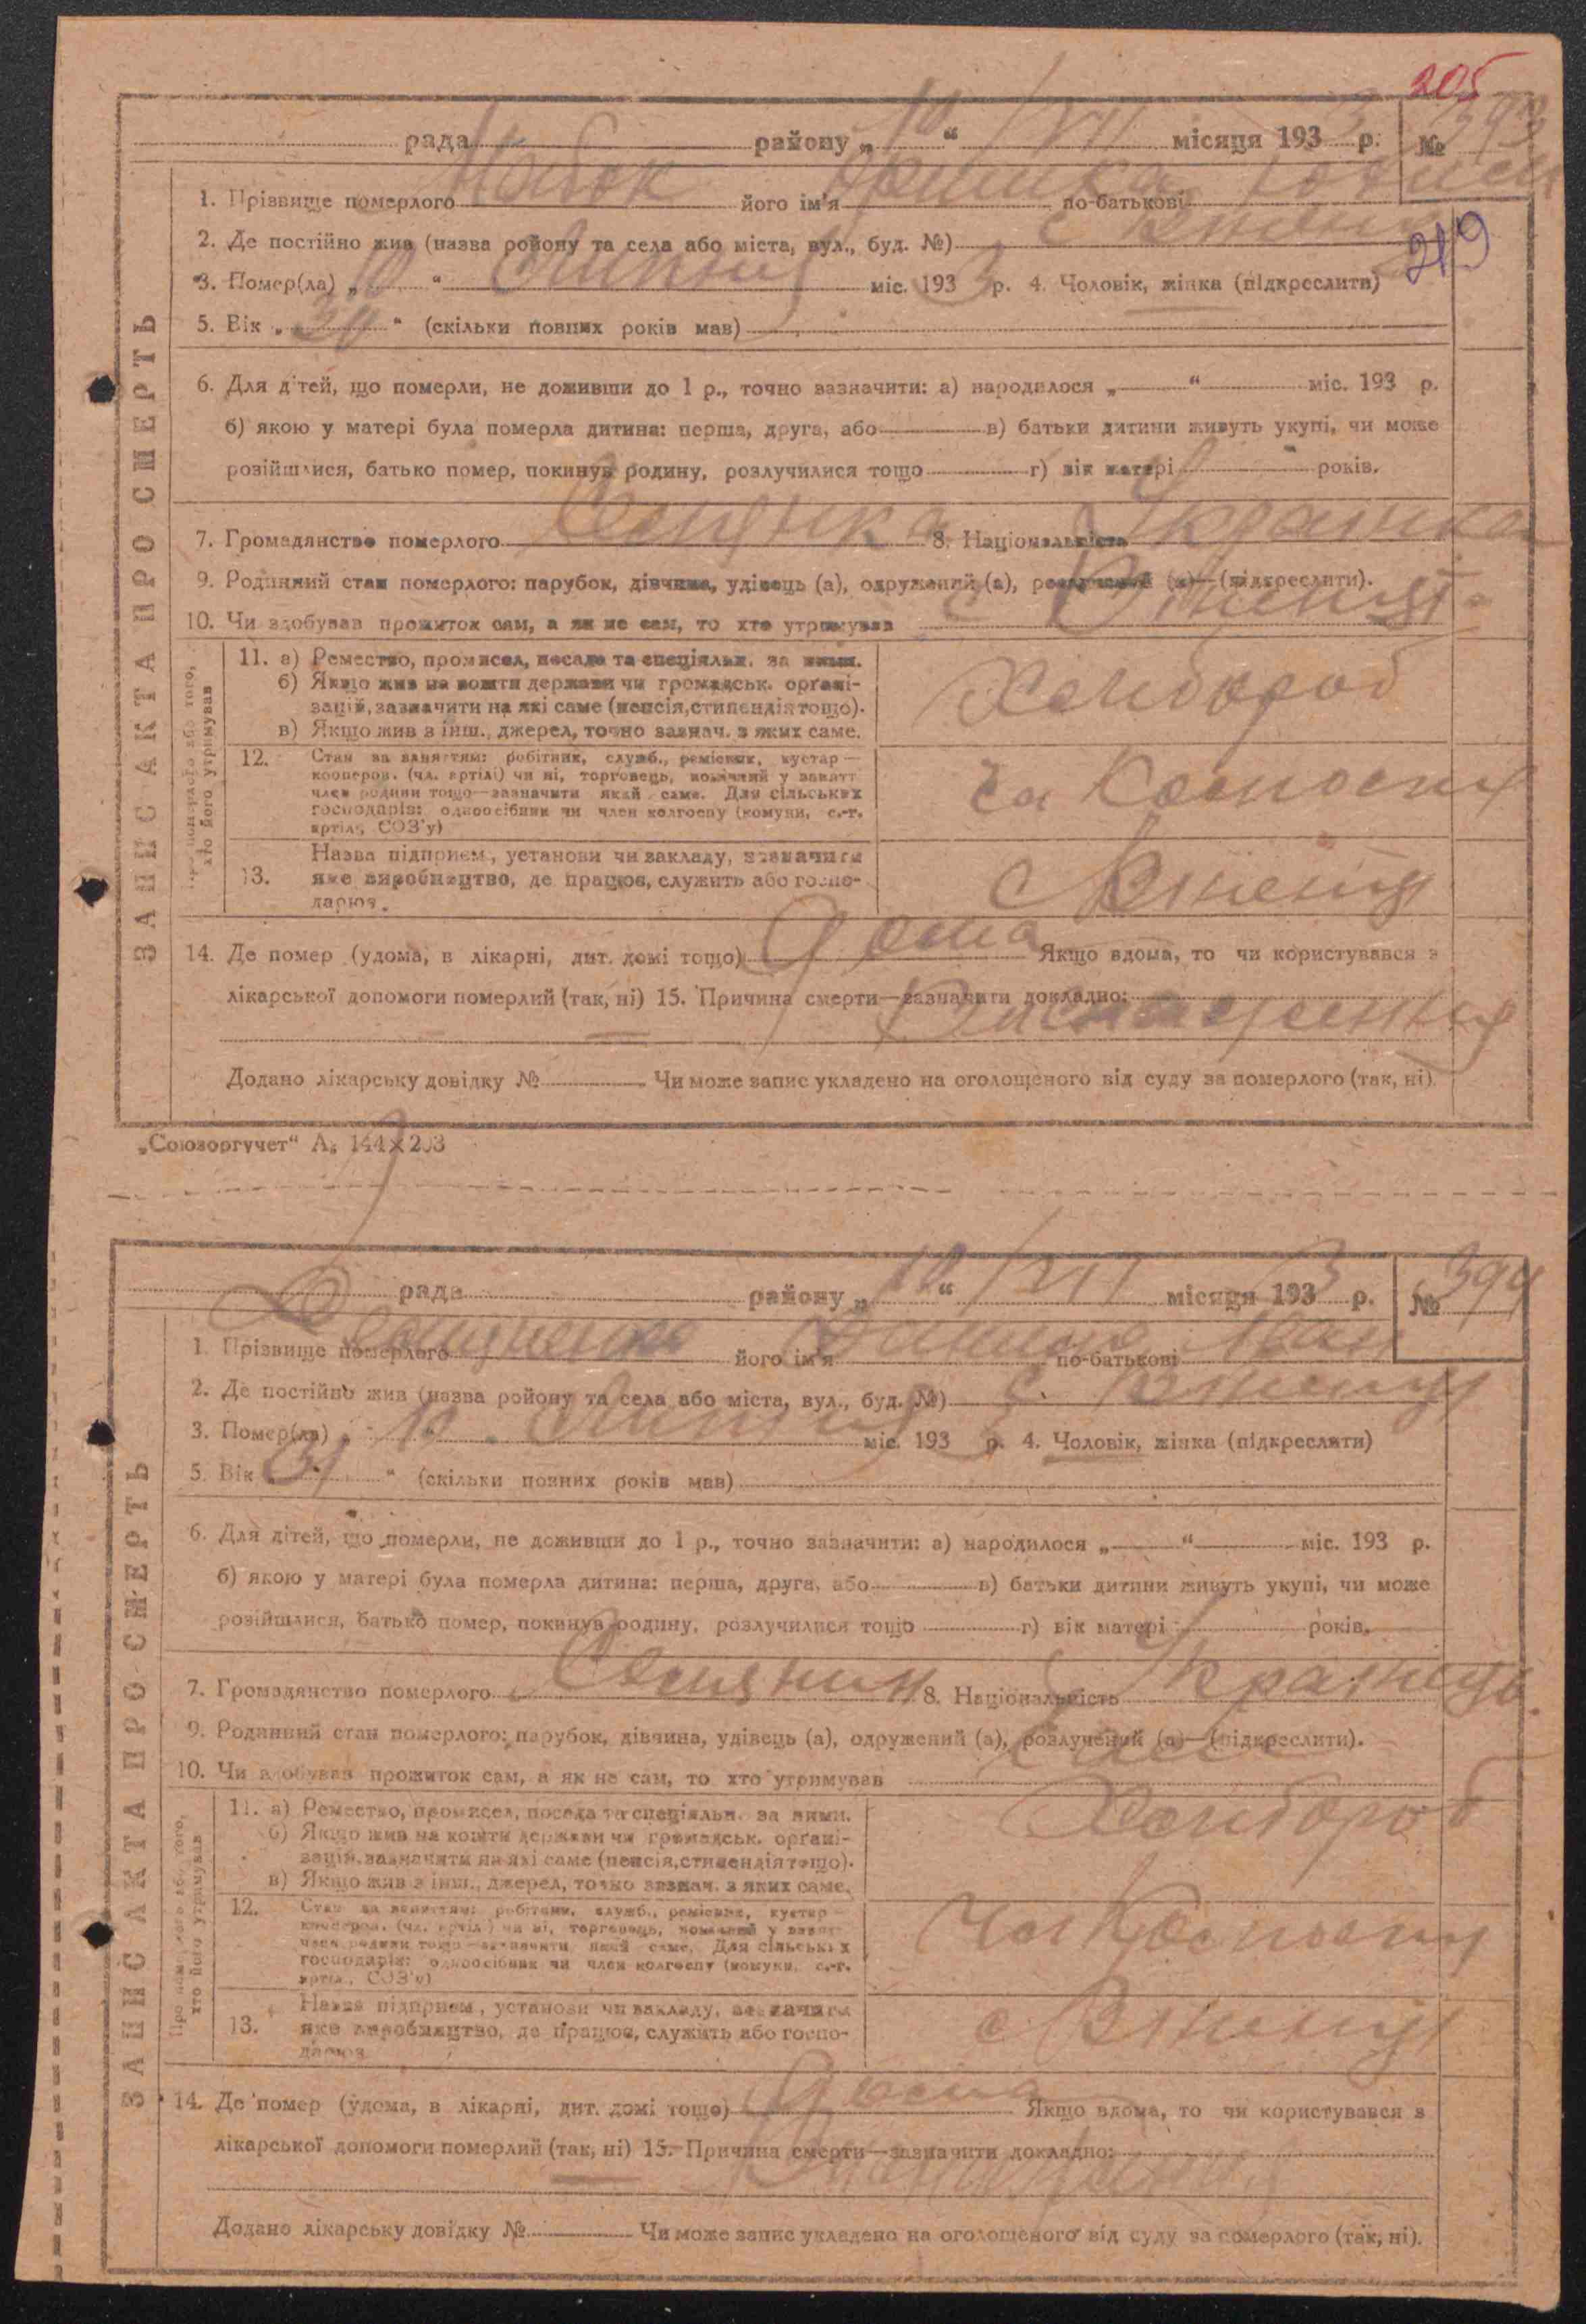 205
рада району „ 10 “ /VII місяця 193 3 р. № 393
1. Прізвище померлого його ім'я по-батькові
2. Де постійно жив (назва ройону та села або міста, вул., буд. №) с
219
3. Помер(ла) „ 10 “ Липня міс. 193 3 р. 4. Чоловік, жінка (підкреслити)
5. Вік „ “ (скільки повних років мав)
6. Для дітей, що померли, не доживши до 1 р., точно зазначити: а) народилося „ “ міс. 193 р.
б) якою у матері була померла дитина: перша, друга, або в) батьки дитини живуть укупі, чи може
розійшлися, батько помер, покинув родину, розлучилися тощо г) вік матері років.
7. Громадянство померлого Селянка 8. Національність Українка
9. Родинний стан померлого: парубок, дівчина, удівець (а), одружений (а), розлучений (а)—(підкреслити).
10. Чи здобував прожиток сам, а як не сам, то хто утримував
ЗАПИС АКТА ПРО СМЕРТЬ
Про померлого або того, хто його утримував
11. а) Ремество, промисел, посада та спеціяльн. за ними.
б) Якщо жив на кошти держави чи громадськ. органі-
зацій, зазначити на які саме (пенсія, стипендія тощо).
в) Якщо жив з інш., джерел, точно зазнач. з яких саме.
Хлібороб
12. Стан за заняттям: робітник, служб., ремісник, кустар —
кооперов. (чл. артілі) чи ні, торговець, помічний у занятт
член родини тощо—зазначити який саме. Для сільських
господарів: одноосібник чи член колгоспу (комуни, с.-г.
артіль, СОЗ'у)
13. Назва підприєм., установи чи закладу, зазначити
яке виробництво, де працює, служить або госпо-
дарює.
с
14. Де помер (удома, в лікарні, дит. домі тощо) Дома Якщо вдома, то чи користувався з
лікарської допомоги померлий (так, ні) 15. Причина смерти—зазначити докладно:
Виснаження
Додано лікарську довідку № Чи може запис укладено на оголошеного від суду за померлого (так, ні).
„Союзоргучет“ А₅ 144×203
рада району „ 10 “ /VII місяця 193 3 р. № 394
1. Прізвище померлого його ім'я Данило по-батькові Іван
2. Де постійно жив (назва ройону та села або міста, вул., буд. №) с.
3. Помер(ла) „ 10 “ Липня міс. 193 3 р. 4. Чоловік, жінка (підкреслити)
5. Вік „ 31 “ (скільки повних років мав)
6. Для дітей, що померли, не доживши до 1 р., точно зазначити: а) народилося „ “ міс. 193 р.
б) якою у матері була померла дитина: перша, друга, або в) батьки дитини живуть укупі, чи може
розійшлися, батько помер, покинув родину, розлучилися тощо г) вік матері років.
7. Громадянство померлого Селянин 8. Національність Українець
9. Родинний стан померлого: парубок, дівчина, удівець (а), одружений (а), розлучений (а)—(підкреслити).
10. Чи здобував прожиток сам, а як не сам, то хто утримував Сам
ЗАПИС АКТА ПРО СМЕРТЬ
Про померлого або того, хто його утримував
11. а) Ремество, промисел, посада та спеціяльн. за ними.
б) Якщо жив на кошти держави чи громадськ. органі-
зацій, зазначити на які саме (пенсія, стипендія тощо).
в) Якщо жив з інш., джерел, точно зазнач. з яких саме.
Хлібороб
12. Стан за заняттям: робітник, служб., ремісник, кустар —
кооперов. (чл. артілі) чи ні, торговець, помічний у занятт
член родини тощо—зазначити який саме. Для сільських
господарів: одноосібник чи член колгоспу (комуни, с.-г.
артіль, СОЗ'у)
13. Назва підприєм., установи чи закладу, зазначити
яке виробництво, де працює, служить або госпо-
дарює
с
14. Де помер (удома, в лікарні, дит. домі тощо) Дома Якщо вдома, то чи користувався з
лікарської допомоги померлий (так, ні) 15. Причина смерти—зазначити докладно:
Виснаження
Додано лікарську довідку № Чи може запис укладено на оголошеного від суду за померлого (так, ні).